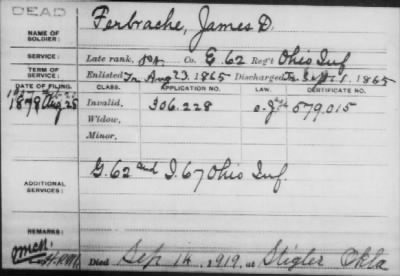 DEAD
NAME OF SOLDIER: Ferbrache, James D.
SERVICE: Late rank, Co. G. 62 Reg't Ohio Inf
TERM OF SERVICE: Enlisted Aug 23, 1865 Discharged Sept. 1, 1865
DATE OF FILING. CLASS. APPLICATION NO. LAW. CERTIFICATE NO.
1879 Aug 25 Invalid, 306.228 579.015
Widow,
Minor,
ADDITIONAL SERVICES: G. 62 and I. 67 Ohio Inf.
REMARKS:
Died Sep 14, 1919, at Stigler Okla